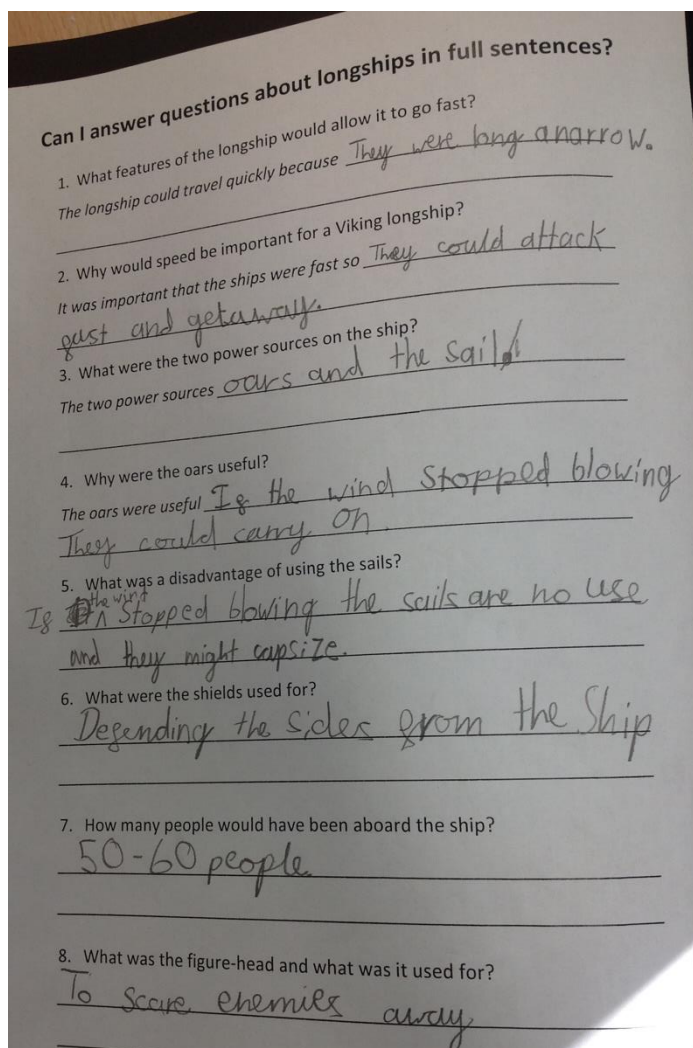 Can I answer questions about longships in full sentences?
1. What features of the longship would allow it to go fast?
The longship could travel quickly because They were long anarrow.
2. Why would speed be important for a Viking longship?
It was important that the ships were fast so They could attack
fast and getaway.
3. What were the two power sources on the ship?
The two power sources oars and the sail
4. Why were the oars useful?
The oars were useful If the wind stopped blowing
They could carry on.
5. What was a disadvantage of using the sails?
If the wind stopped blowing the sails are no use
and they might capsize.
6. What were the shields used for?
Defending the sides from the ship
7. How many people would have been aboard the ship?
50-60 people
8. What was the figure-head and what was it used for?
To scare enemies away